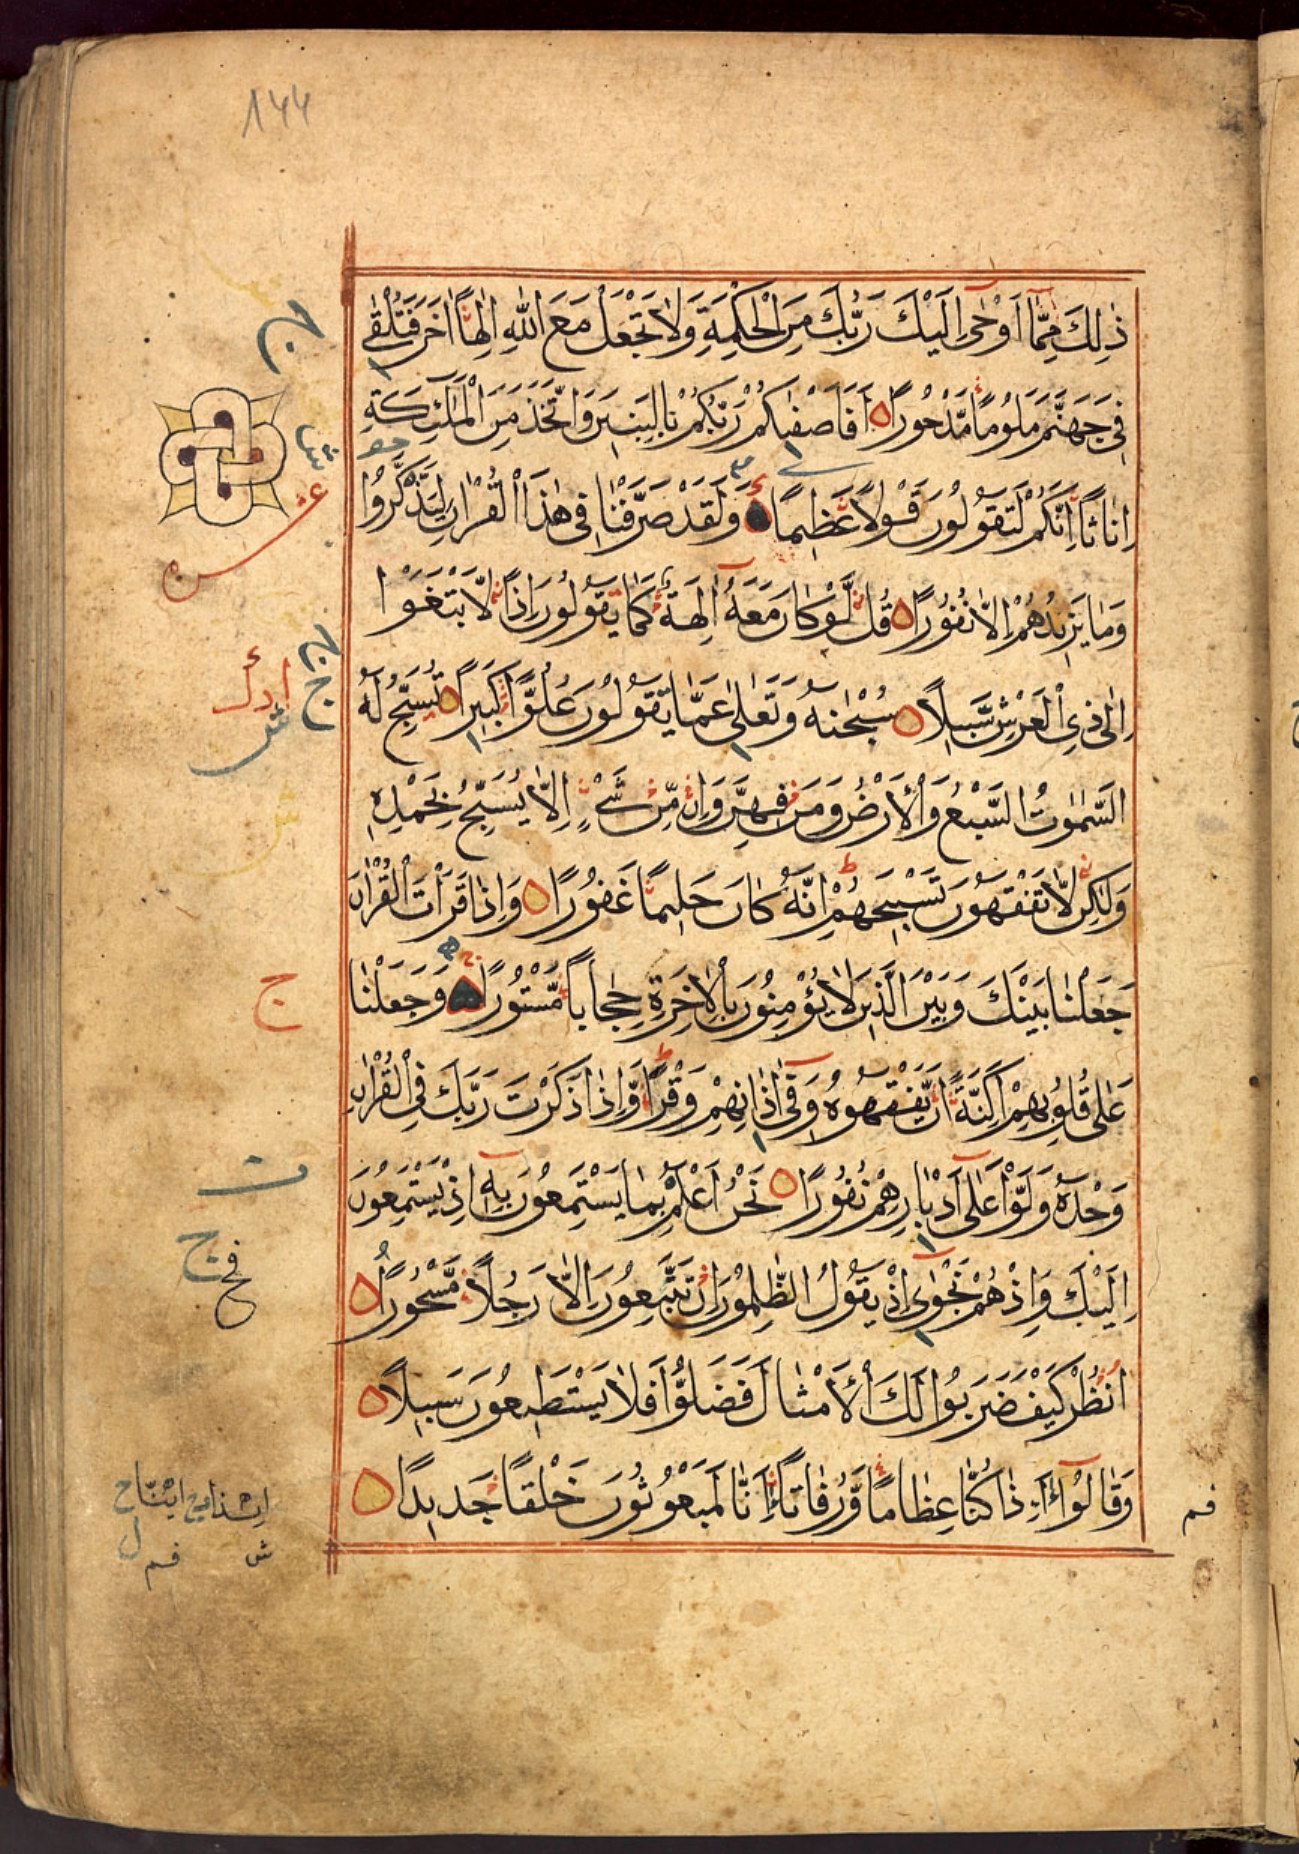 ١٤٤
ذٰلِكَ مِمَّآ اَوْحٰىٓ اِلَيْكَ رَبُّكَ مِنَ الْحِكْمَةِ وَلَا تَجْعَلْ مَعَ اللّٰهِ اِلٰهًا اٰخَرَ فَتُلْقٰى
فِى جَهَنَّمَ مَلُومًا مَّدْحُورًا اَفَاَصْفٰىكُمْ رَبُّكُمْ بِالْبَنِينَ وَاتَّخَذَ مِنَ الْمَلٰٓئِكَةِ
اِنَاثًا اِنَّكُمْ لَتَقُولُونَ قَوْلًا عَظِيمًا وَلَقَدْ صَرَّفْنَا فِى هٰذَا الْقُرْاٰنِ لِيَذَّكَّرُوا
وَمَا يَزِيدُهُمْ اِلَّا نُفُورًا قُلْ لَّوْ كَانَ مَعَهُٓ اٰلِهَةٌ كَمَا يَقُولُونَ اِذًا لَّابْتَغَوْا
اِلٰى ذِى الْعَرْشِ سَبِيلًا سُبْحٰنَهُ وَتَعٰلٰى عَمَّا يَقُولُونَ عُلُوًّا كَبِيرًا تُسَبِّحُ لَهُ
السَّمٰوٰتُ السَّبْعُ وَالْاَرْضُ وَمَنْ فِيهِنَّ وَاِنْ مِّنْ شَىْءٍ اِلَّا يُسَبِّحُ بِحَمْدِهِ
وَلٰكِنْ لَّا تَفْقَهُونَ تَسْبِيحَهُمْ اِنَّهُ كَانَ حَلِيمًا غَفُورًا وَاِذَا قَرَاْتَ الْقُرْاٰنَ
جَعَلْنَا بَيْنَكَ وَبَيْنَ الَّذِينَ لَا يُؤْمِنُونَ بِالْاٰخِرَةِ حِجَابًا مَّسْتُورًا وَجَعَلْنَا
عَلٰى قُلُوبِهِمْ اَكِنَّةً اَنْ يَّفْقَهُوهُ وَفِىٓ اٰذَانِهِمْ وَقْرًا وَّاِذَا ذَكَرْتَ رَبَّكَ فِى الْقُرْاٰنِ
وَحْدَهُ وَلَّوْا عَلٰٓى اَدْبَارِهِمْ نُفُورًا نَحْنُ اَعْلَمُ بِمَا يَسْتَمِعُونَ بِهِٓ اِذْ يَسْتَمِعُونَ
اِلَيْكَ وَاِذْ هُمْ نَجْوٰىٓ اِذْ يَقُولُ الظّٰلِمُونَ اِنْ تَتَّبِعُونَ اِلَّا رَجُلًا مَّسْحُورًا
اُنْظُرْ كَيْفَ ضَرَبُوا لَكَ الْاَمْثَالَ فَضَلُّوا فَلَا يَسْتَطِيعُونَ سَبِيلًا
وَقَالُوٓا ءَاِذَا كُنَّا عِظَامًا وَّرُفَاتًا ءَاِنَّا لَمَبْعُوثُونَ خَلْقًا جَدِيدًا